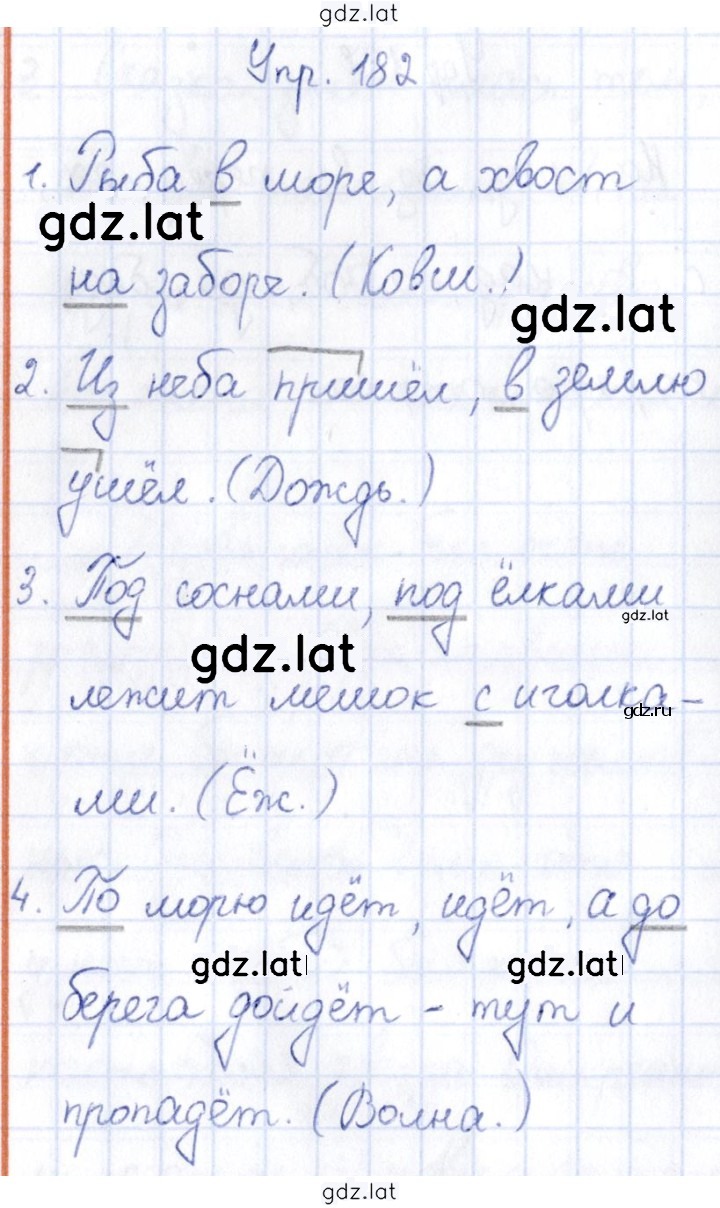 gdz.lat
Упр. 182
1. Рыба в море, а хвост
gdz.lat
на заборе. (Ковш.)
gdz.lat
2. Из неба пришёл, в землю
ушёл. (Дождь.)
3. Под соснами, под ёлками
gdz.lat
gdz.lat
лежит мешок с иголка-
gdz.ru
ми. (Ёж.)
4. По морю идёт, идёт, а до
gdz.lat gdz.lat
берега дойдёт - тут и
пропадёт. (Волна.)
gdz.lat